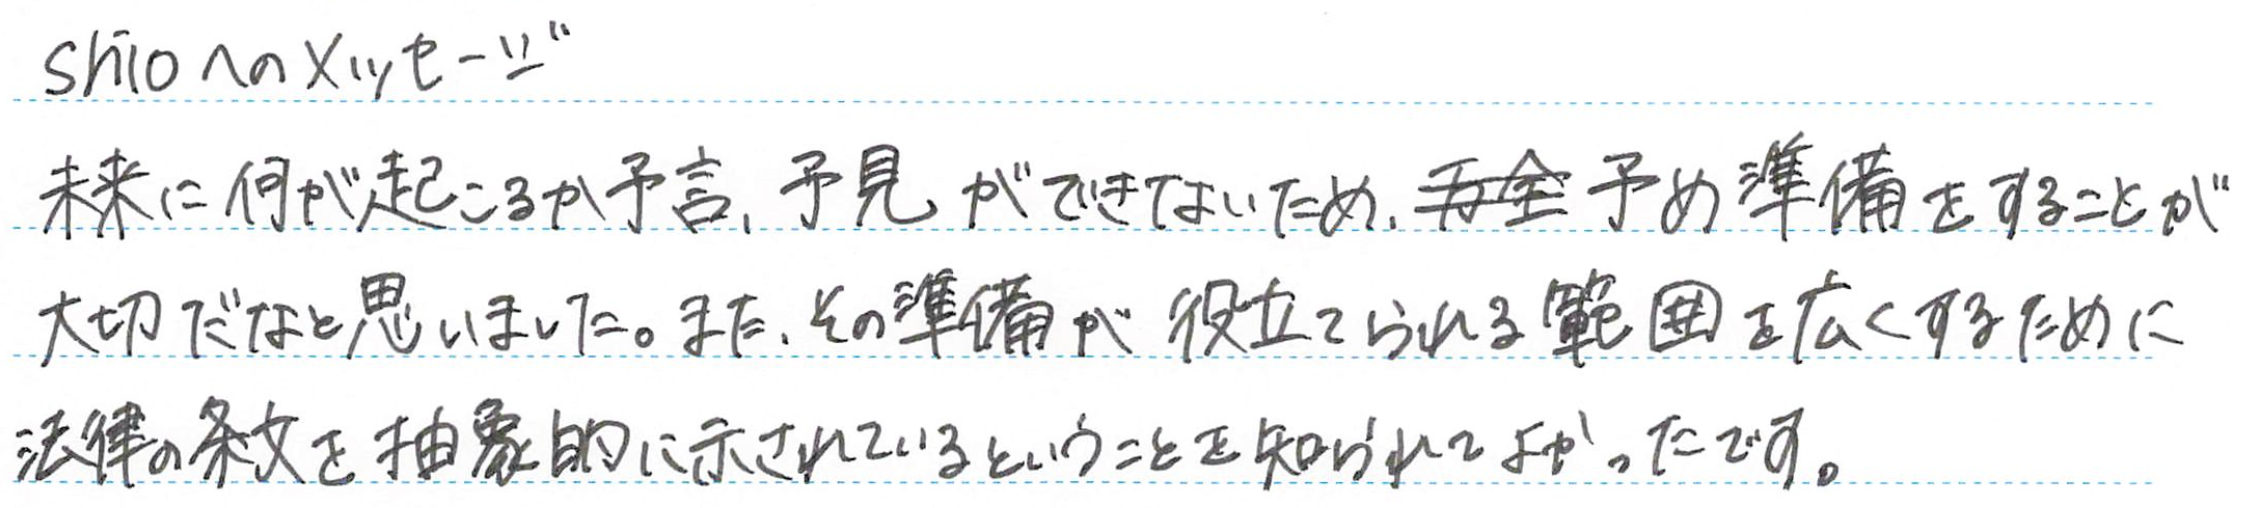 shioへのメッセージ
未来に何が起こるか予言、予見ができないため、予め準備をすることが
大切だなと思いました。また、その準備が役立てられる範囲を広くするために
法律の条文を抽象的に示されているということを知られてよかったです。